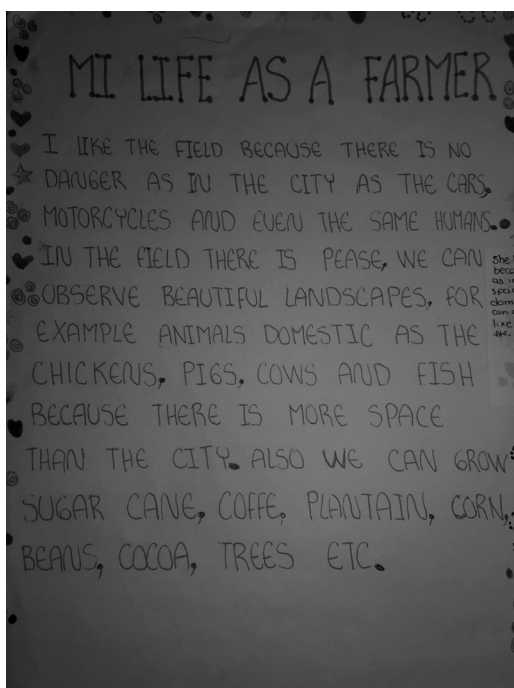 MI LIFE AS A FARMER
I LIKE THE FIELD BECAUSE THERE IS NO
DANGER AS IN THE CITY AS THE CARS,
MOTORCYCLES AND EVEN THE SAME HUMANS.
IN THE FIELD THERE IS PEASE, WE CAN
OBSERVE BEAUTIFUL LANDSCAPES, FOR
EXAMPLE ANIMALS DOMESTIC AS THE
CHICKENS, PIGS, COWS AND FISH
BECAUSE THERE IS MORE SPACE
THAN THE CITY. ALSO WE CAN GROW
SUGAR CANE, COFFE, PLANTAIN, CORN,
BEANS, COCOA, TREES ETC.
She
beca
as in
dom
can
like